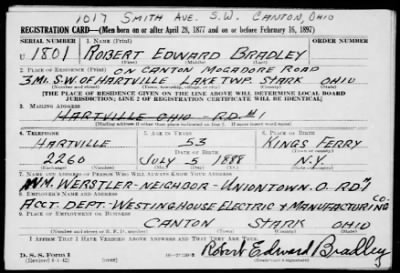 1017 SMITH AVE. S.W. CANTON, OHIO
REGISTRATION CARD—(Men born on or after April 28, 1877 and on or before February 16, 1897)
SERIAL NUMBER 1. NAME (Print) ORDER NUMBER
U 1801 ROBERT EDWARD BRADLEY
2. PLACE OF RESIDENCE (Print) ON CANTON MOGADORE ROAD
3 MI. S.W. OF HARTVILLE LAKE TWP. STARK OHIO
(Number and street) (Town, township, village, or city) (County) (State)
[THE PLACE OF RESIDENCE GIVEN ON THE LINE ABOVE WILL DETERMINE LOCAL BOARD
JURISDICTION; LINE 2 OF REGISTRATION CERTIFICATE WILL BE IDENTICAL]
3. MAILING ADDRESS
HARTVILLE OHIO - RD #1
[Mailing address if other than place indicated on line 2. If same insert word same]
4. TELEPHONE 5. AGE IN YEARS 6. PLACE OF BIRTH
HARTVILLE 53 KINGS FERRY
DATE OF BIRTH (Town or county)
2260 JULY 5 1888 N.Y.
(Exchange) (Number) (Mo.) (Day) (Yr.) (State or country)
7. NAME AND ADDRESS OF PERSON WHO WILL ALWAYS KNOW YOUR ADDRESS
WM. WERSTLER-NEIGHBOR-UNIONTOWN. O RD #1
8. EMPLOYER'S NAME AND ADDRESS
ACCT. DEPT.-WESTINGHOUSE ELECTRIC & MANUFACTURING CO.
9. PLACE OF EMPLOYMENT OR BUSINESS
CANTON STARK OHIO
(Number and street or R. F. D. number) (Town) (County) (State)
I AFFIRM THAT I HAVE VERIFIED ABOVE ANSWERS AND THAT THEY ARE TRUE.
D. S. S. Form 1
(Revised 4-1-42) Robert Edward Bradley